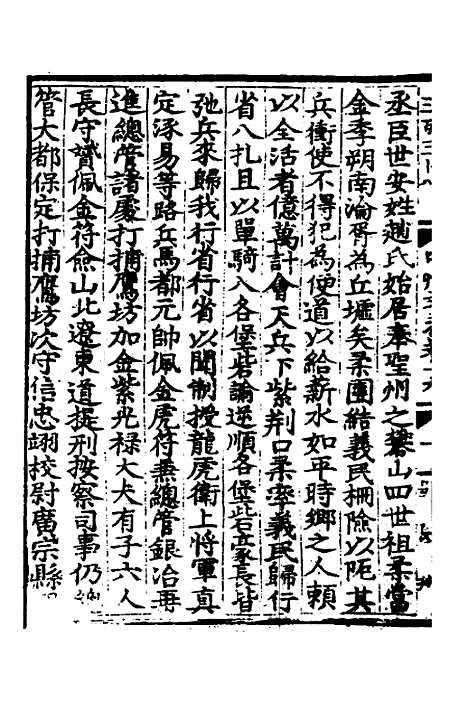 丞臣世安姓趙氏始居奉聖州之礬山四世祖柔當
金季朔南淪胥為丘墟矣柔團結義民柵險以阨其
兵衝使不得犯為便道以給薪水如平時鄉之人賴
以全活者億萬計會天兵下紫荆口柔率義民歸行
省八扎且以單騎入各堡砦諭逆順各堡砦豪長皆
弛兵來歸我行省行省以聞制授龍虎衛上將軍真
定涿易等路兵馬都元帥佩金虎符兼總管銀冶再
進總管諸處打捕鷹坊加金紫光祿大夫有子六人
長守贇佩金符僉山北遼東道提刑按察司事仍
管大都保定打捕鷹坊次守信忠翊校尉廣宗縣